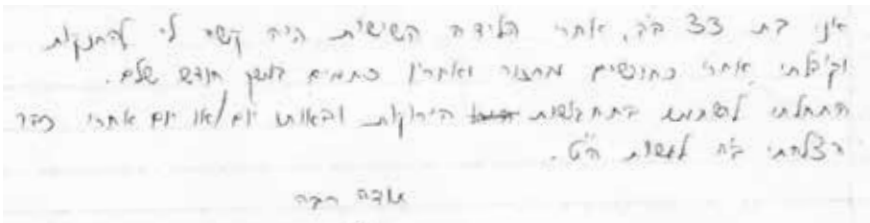 אני בת 33 ב"ה, אחרי הלידה השישית היה קשה לי להתנקות
וקיבלתי אחרי כחודשיים מחזור ואחריו כתמים במשך חודש שלם.
התחלתי להשתמש בתחבושות הירוקות ובאותו יום/או יום אחרי כבר
הצלחתי ב"ה לעשות ה"ט.
תודה רבה